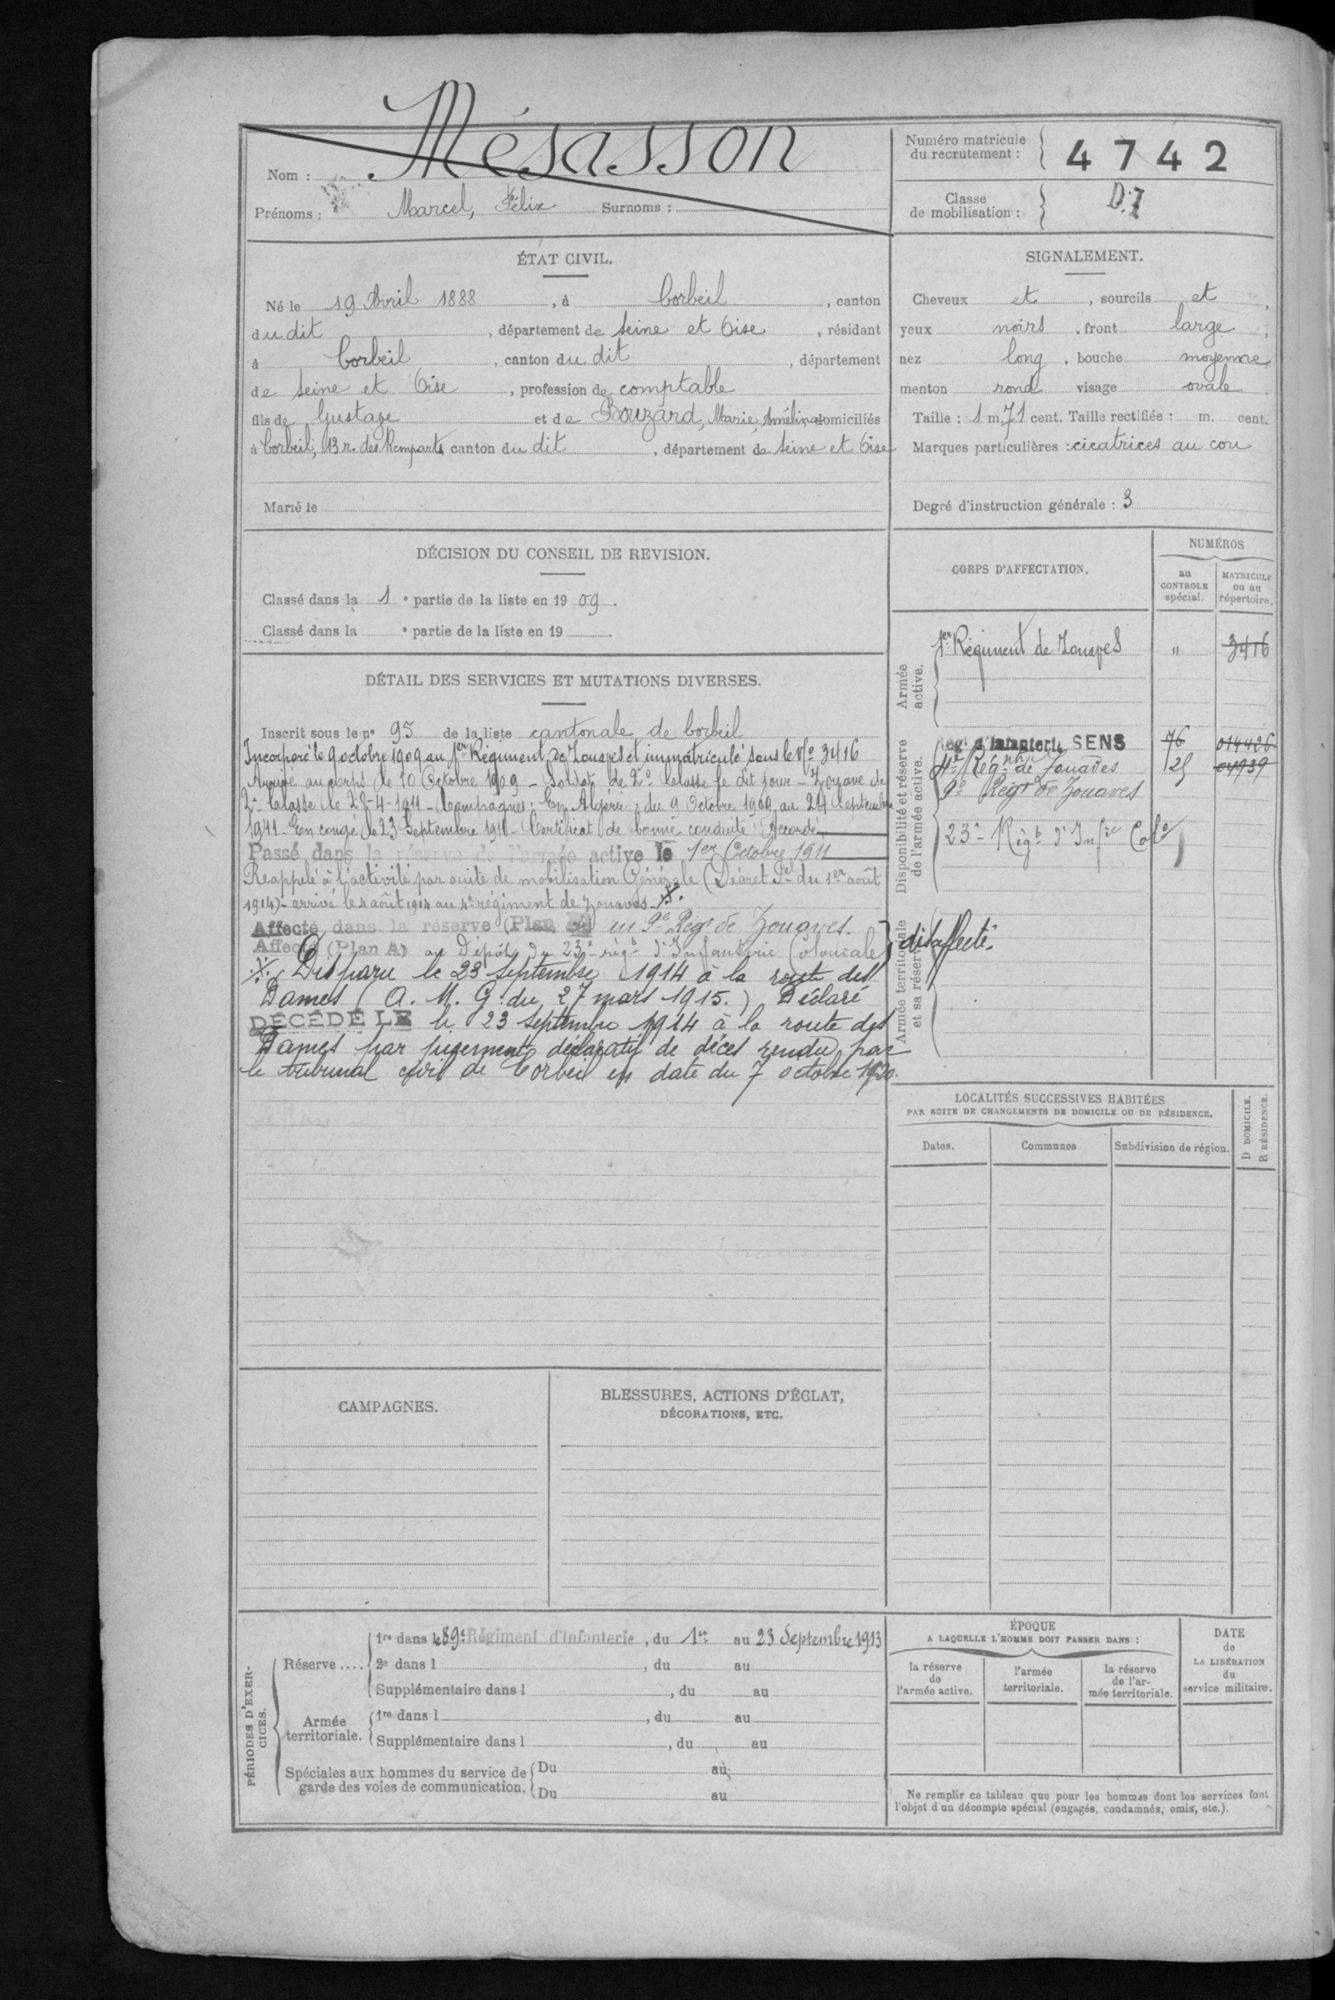 Nom : Mésasson
Prénoms : Marcel, Félix Surnoms :
Numéro matricule du recrutement : 4742
Classe de mobilisation : D.7
ÉTAT CIVIL.
Né le 19 Avril 1888, à Corbeil, canton
du dit, département de Seine et Oise, résidant
à Corbeil, canton du dit, département
de Seine et Oise, profession de comptable
fils de Gustave et de Bouzard, Marie, Amélina domiciliés
à Corbeil, 13 r. des Remparts canton du dit, département de Seine et Oise
Marié le
SIGNALEMENT.
Cheveux et, sourcils et,
yeux noirs, front large,
nez long, bouche moyenne,
menton rond visage ovale.
Taille : 1 m. 71 cent. Taille rectifiée : m. cent.
Marques particulières : cicatrices au cou
Degré d'instruction générale : 3
DÉCISION DU CONSEIL DE REVISION.
Classé dans la 1e partie de la liste en 1909.
Classé dans la e partie de la liste en 19
DÉTAIL DES SERVICES ET MUTATIONS DIVERSES.
Inscrit sous le no 95 de la liste cantonale de Corbeil
Incorporé le 9 octobre 1909 au 1er Régiment de Zouaves et immatriculé sous le No 3416
Arrivé au corps le 10 Octobre 1909 - Soldat de 2e Classe le dit jour - Zouave de
2e Classe le 25-4-1911 - Campagnes : En Algérie : du 9 Octobre 1909 au 24 septembre
1911 - En congé le 23 Septembre 1911 - Certificat de bonne conduite "Accordé"
Passé dans la réserve de l'armée active le 1er Octobre 1911
Rappelé à l'activité par suite de mobilisation Générale (Décret Pel du 1er août
1914) - arrivé le 4 août 1914 au 4e régiment de Zouaves
Affecté dans la réserve (Plan) au 9e Régt de Zouaves.
Affecté (Plan A) au Dépôt du 23e régt d'Infanterie Coloniale } désaffecté
Disparu le 23 septembre 1914 à la route des
Dames (A. M. G. du 27 mars 1915.) Déclaré
DÉCÉDÉ LE le 23 septembre 1914 à la route des
Dames par jugement déclaratif de décès rendu par
le tribunal civil de Corbeil en date du 7 octobre 1920.
CORPS D'AFFECTATION.
NUMÉROS
au CONTROLE spécial.
MATRICULE ou au répertoire.
Armée active.
1er Régiment de Zouaves " 3416
Disponibilité et réserve de l'armée active.
Régt d'Infanterie SENS 76 014426
4e Régt de Zouaves 25 04939
9e Régt de Zouaves
23e Régt d'Infie Cole
Armée territoriale et sa réserve
LOCALITÉS SUCCESSIVES HABITÉES
PAR SUITE DE CHANGEMENTS DE DOMICILE OU DE RÉSIDENCE.
D DOMICILE.
R RÉSIDENCE.
Dates. Communes Subdivision de région.
CAMPAGNES.
BLESSURES, ACTIONS D'ÉCLAT,
DÉCORATIONS, ETC.
PÉRIODES D'EXERCICES.
Réserve ....
1re dans le 89e Régiment d'Infanterie, du 1er au 23 Septembre 1913
2e dans l, du au
Supplémentaire dans l, du au
Armée territoriale.
1re dans l, du au
Supplémentaire dans l, du au
Spéciales aux hommes du service de garde des voies de communication.
Du au
Du au
ÉPOQUE
A LAQUELLE L'HOMME DOIT PASSER DANS :
la réserve de l'armée active.
l'armée territoriale.
la réserve de l'armée territoriale.
DATE de LA LIBÉRATION du service militaire.
Ne remplir ce tableau que pour les hommes dont les services font
l'objet d'un décompte spécial (engagés, condamnés, omis, etc.).